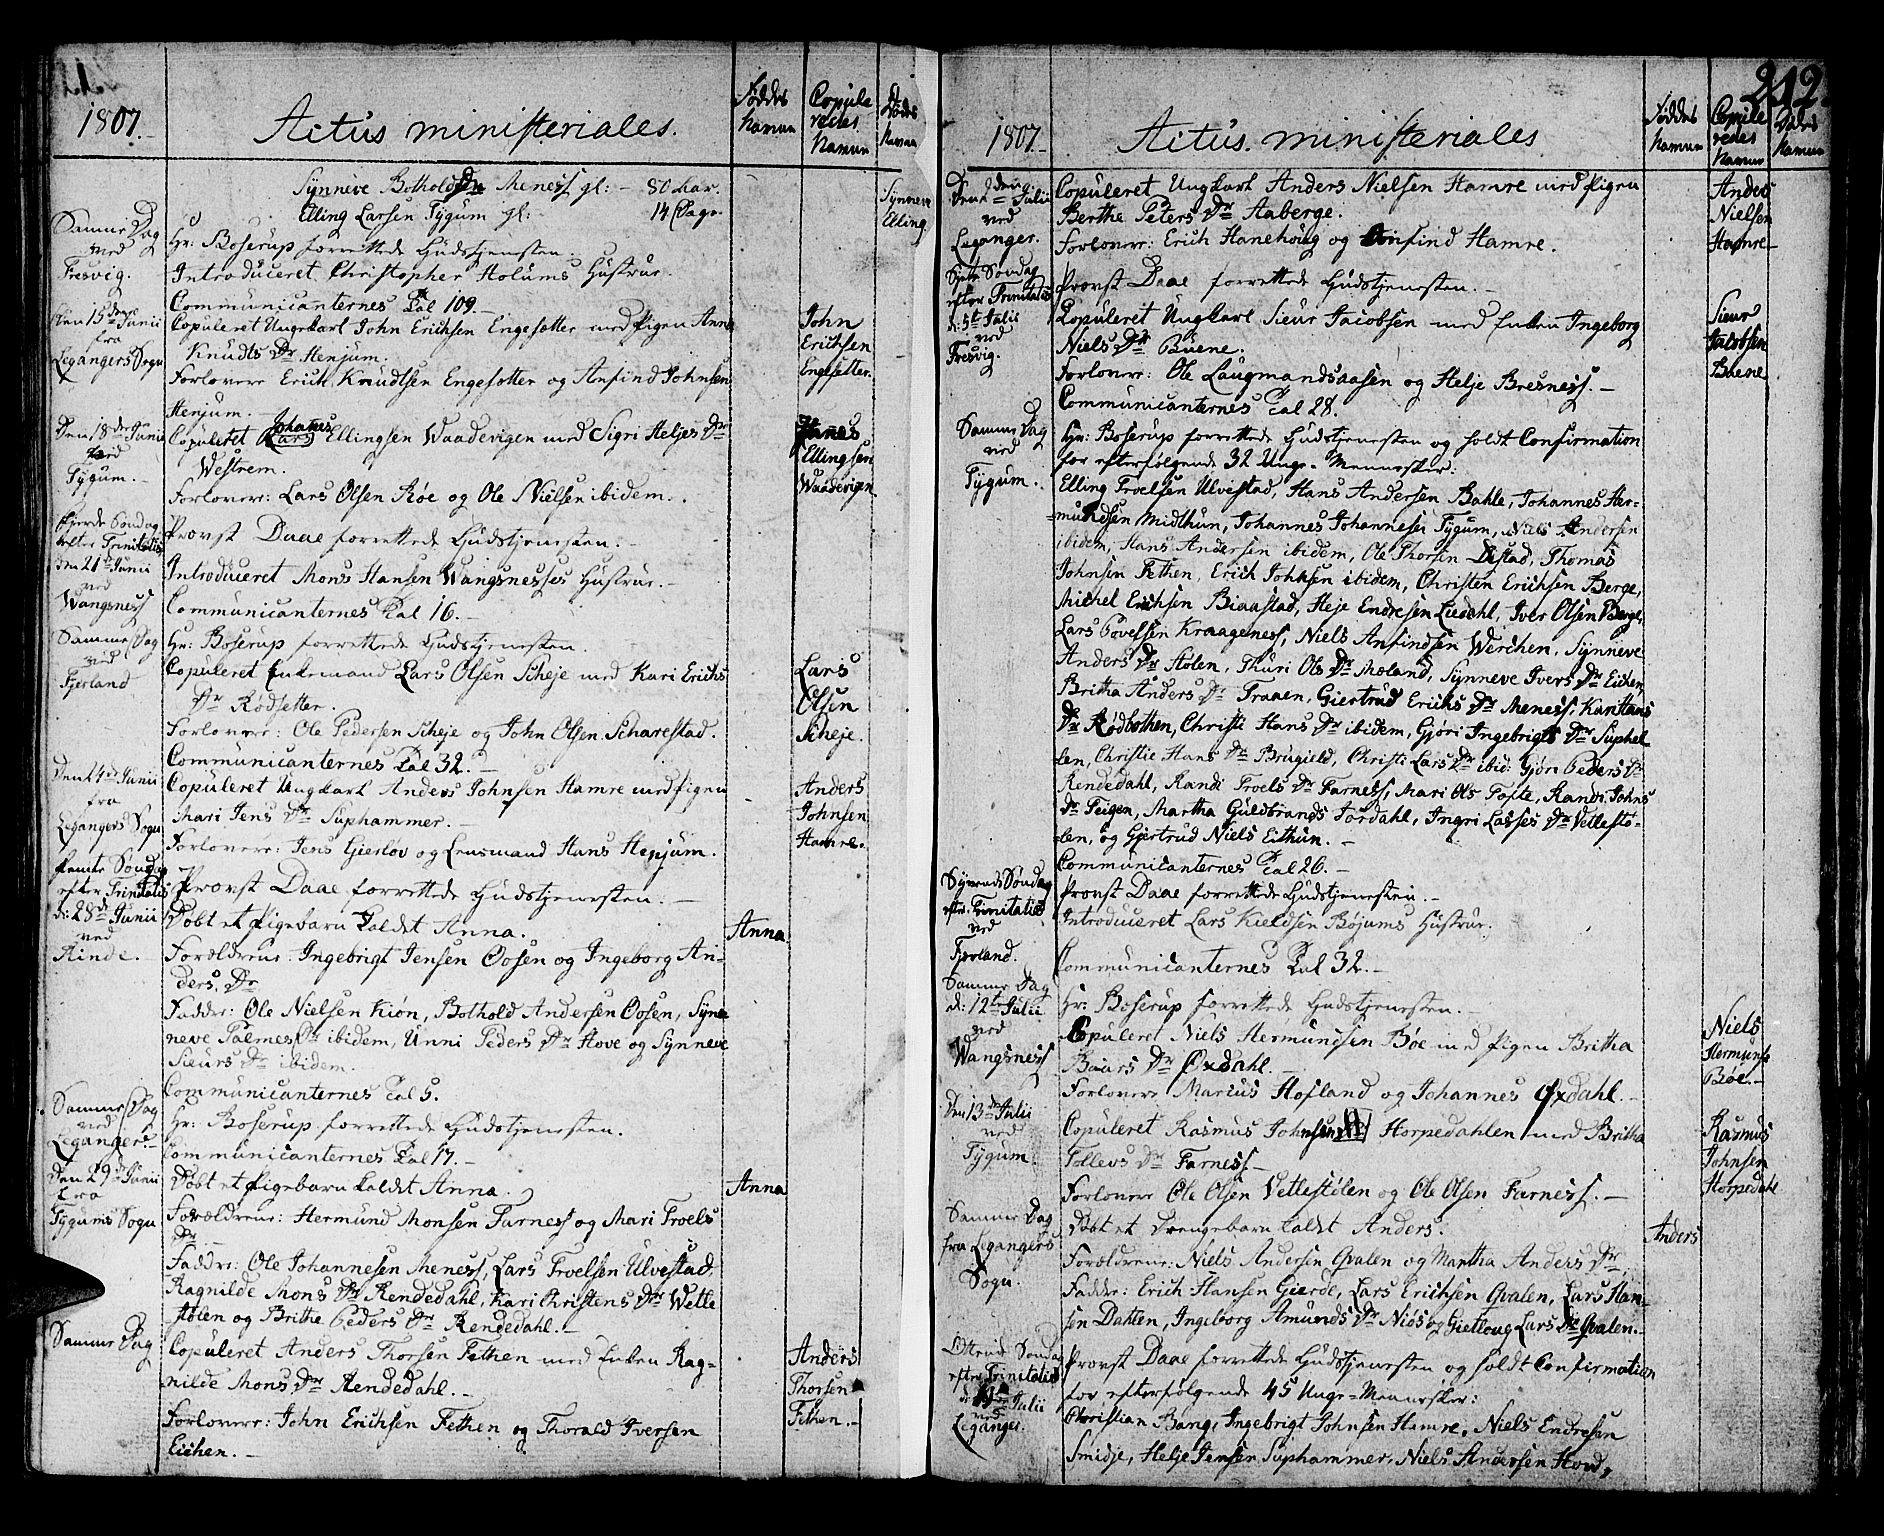 1807.
Actus ministeriales.
Føddes Namen
Copuleredes Namen
Dødes Namen
Synneve Botholds Dr Meness gl: - 80 Aar.
Synneve
Elling Larsen Tygum gl: 14 Dage.
Elling
Samme Dag ved Fresvig.
Hr: Boserup forrettede Gudstjenesten.
Introduceret Christopher Holums Hustrue.
Communicanternes Tal 109.
Den 15de Junii fra Legangers Sogn
Copuleret Ungkarl John Erichsen Engesætter med Pigen Anna
Knudts Dr Henjum.
John Erichsen Engesetter.
Forlovere Erich Knudtsen Engesætter og Anfind Johnsen
Henjum.
Den 18de Junii ved Tygum.
Copuleret Johanes Lars Ellingsen Waadevigen med Sigri Heljes Dr
Westrem.
Hanes Ellingsen Waadevigen
Forlovere: Lars Olsen Røe og Ole Nielsen ibidem.
Fjerde Søndag efter Trinitatis den 21de Junii ved Wangsness
Provst Daae forrettede Gudstjenesten.
Introduceret Mons Hansen Wangsnesses Hustrue.
Communicanternes Tal 16.
Samme Dag ved Fjerland
Hr: Boserup forrettede Gudstjenesten.
Copuleret Enkemand Lars Olsen Scheje med Kari Erichs
Dr Rødsetter.
Lars Olsen Scheje.
Forlovere: Ole Pedersen Scheje og John Olsen Scharestad.
Communicanternes Tal 32.
Den 24de Junii fra Legangers Sogn
Copuleret Ungkarl Anders Johnsen Hamre med Pigen
Mari Jens Dr Suphammer.
Anders Johnsen Hamre.
Forlovere: Jens Gierløv og Lensmand Hans Henjum.
Femte Søndag efter Trinitatis d: 28de Junii ved Rinde.
Provst Daae forrettede Gudstjenesten.
Døbt et Pigebarn kaldet Anna.
Anna
Forældrene: Ingebrigt Jensen Oosen og Ingeborg An-
ders Dr
Faddre: Ole Nielsen Kiøn, Bothold Andersen Oosen, Syne
neve Palmes Dr ibidem, Unni Peders Dr Hove og Synneve
Sieurs Dr ibidem.
Communicanternes Tal 5.
Samme Dag ved Leganger.
Hr: Boserup forrettede Gudstjenesten.
Communicanternes Tal 17.
Den 29de Junii fra Tygums Sogn
Døbt et Pigebarn kaldet Anna.
Anna
Forældrene: Hermund Monsen Farness og Mari Troels
Dr
Faddre: Ole Johannesen Meness, Lars Troelsen Ulvestad,
Ragnilde Mons Dr Rendedahl, Kari Christens Dr Wetle
stølen og Brithe Peders Dr Rendedahl.
Samme Dag
Copuleret Anders Thorsen Fethen med Enken Rag-
nilde Mons Dr Rendedahl.
Anders Thorsen Fethen.
Forlovere: John Erichsen Fethen og Thorald Iversen
Eichen.
1807
Actus ministeriales
212.
Føddes Namen
Copuleredes Namen
Dødes Namen
Den 2den Julii ved Leganger.
Copuleret Ungkarl Anders Nielsen Hamre med Pigen
Berthe Peters Dr Aaberge.
Anders Nielsen Hamre
Forlovere: Erich Hanehoug og Anfind Hamre.
Sjette Søndag efter Trinitatis d: 5te Julii ved Fresvig.
Provst Daae forrettede Gudstjenesten.
Copuleret Ungkarl Sieur Jacobsen med Enken Ingeborg
Niels Dr Buene.
Sieur Jacobsen Buene
Forlovere: Ole Laugmandsaasen og Helje Bresness.
Communicanternes Tal 28.
Samme Dag ved Tygum.
Hr: Boserup forrettede Gudstjenesten og holdt Confirmation
for efterfølgende 32 Unge-Mennesker:
Elling Troelsen Ulvestad, Hans Andersen Bahle, Johannes Her-
mundsen Midthun, Johannes Johannesen Tygum, Niels Andersen
ibidem, Hans Andersen ibidem, Ole Thorsen Distad, Thomas
Johnsen Fethen, Erich Johnsen ibidem, Christen Erichsen Berge,
Michel Erichsen Biaastad, Heje Endresen Liedahl, Iver Olsen Berge,
Lars Povelsen Kraageness, Niels Anfindsen Werchen, Synneve
Anders Dr Stølen, Thuri Ols Dr Mæland, Synneve Ivers Dr Eichen,
Britha Anders Dr Fraaen, Giertrud Erichs Dr Meness, Kari Hans
Dr Rødbothen, Christi Hans Dr ibidem, Gjøri Ingebrigts Dr Suphel
len, Christie Hans Dr Brugield, Christi Lars Dr ibid: Gjøri Peders Dr
Rendedahl, Randi Troels Dr Farness, Mari Ols Tofte, Randi Johns
Dr Teigen, Martha Guldbrands Jordahl, Ingri Lasses Dr Vetlestø-
len, og Giertrud Niels Eithun.
Communicanternes Tal 26.
Syvende Søndag efter Trinitatis ved Fjerland.
Provst Daae forrettede Gudstjenesten.
Introduceret Lars Kieldsen Bøjums Hustrue.
Communicanternes Tal 32.
Samme Dag d: 12te Julii ved Wangsness
Hr: Boserup forrettede Gudstjenesten.
Copuleret Niels Hermundsen Bøe med Pigen Britha
Baars Dr Oxdahl.
Niels Hermunds Bøe.
Forlovere Marcus Hofland og Johannes Oxdahl.
Den 13de Julii ved Tygum.
Copuleret Rasmus Johnsen Horpedahlen med Britha
Tollevs Dr Farness
Rasmus Johnsen Horpedahl
Forlovere Ole Olsen Vetlestølen og Ole Olsen Farness.
Samme Dag fra Legangers Sogn.
Døbt et Drengebarn kaldet Anders.
Anders
Forældrene: Niels Andersen Qvalen og Martha Anders Dr
Faddre: Erich Hansen Gierde, Lars Erichsen Qvalen, Lars Han-
sen Dahlen, Ingeborg Amunds Dr Niøs og Gietloug Lars Dr Qvalen.
Ottende Søndag efter Trinitatis d: Julii ved Leganger.
Provst Daae forrettede Gudstjenesten og holdt Confirmation
for efterfølgende 45 Unge-Mennesker:
Christian Bang, Ingebrigt Johnsen Hamre, Niels Endresen
Smidje, Helje Jensen Suphammer, Niels Andersen Hovd,